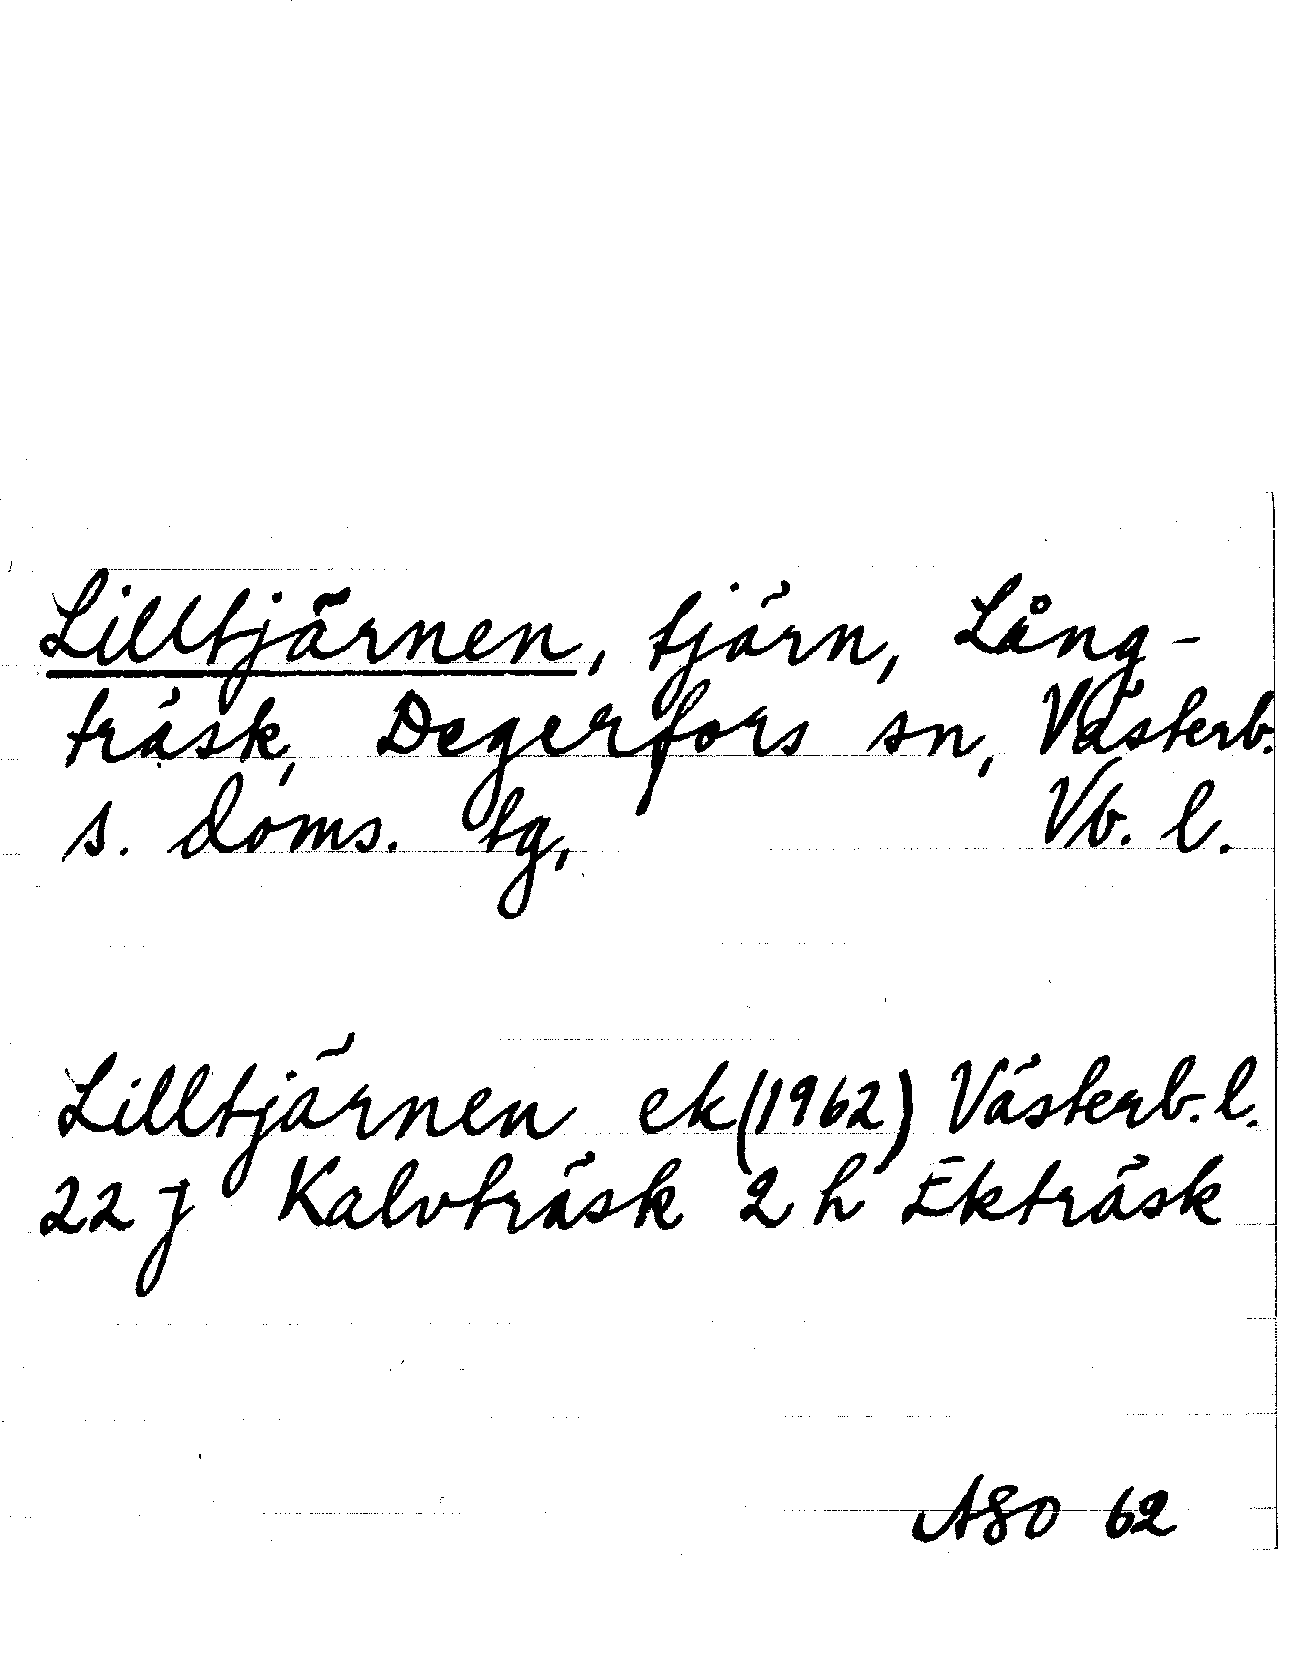 Lilltjärnen, tjärn, Lång-
träsk, Degerfors sn, Västerb.
s. doms. tg, Vb. l.
Lilltjärnen ek (1962) Västerb. l.
22 j Kalvträsk 2 h Ekträsk
ASO 62